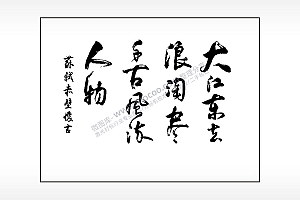 大江东去
浪淘尽
千古风流
人物
苏轼赤壁怀古